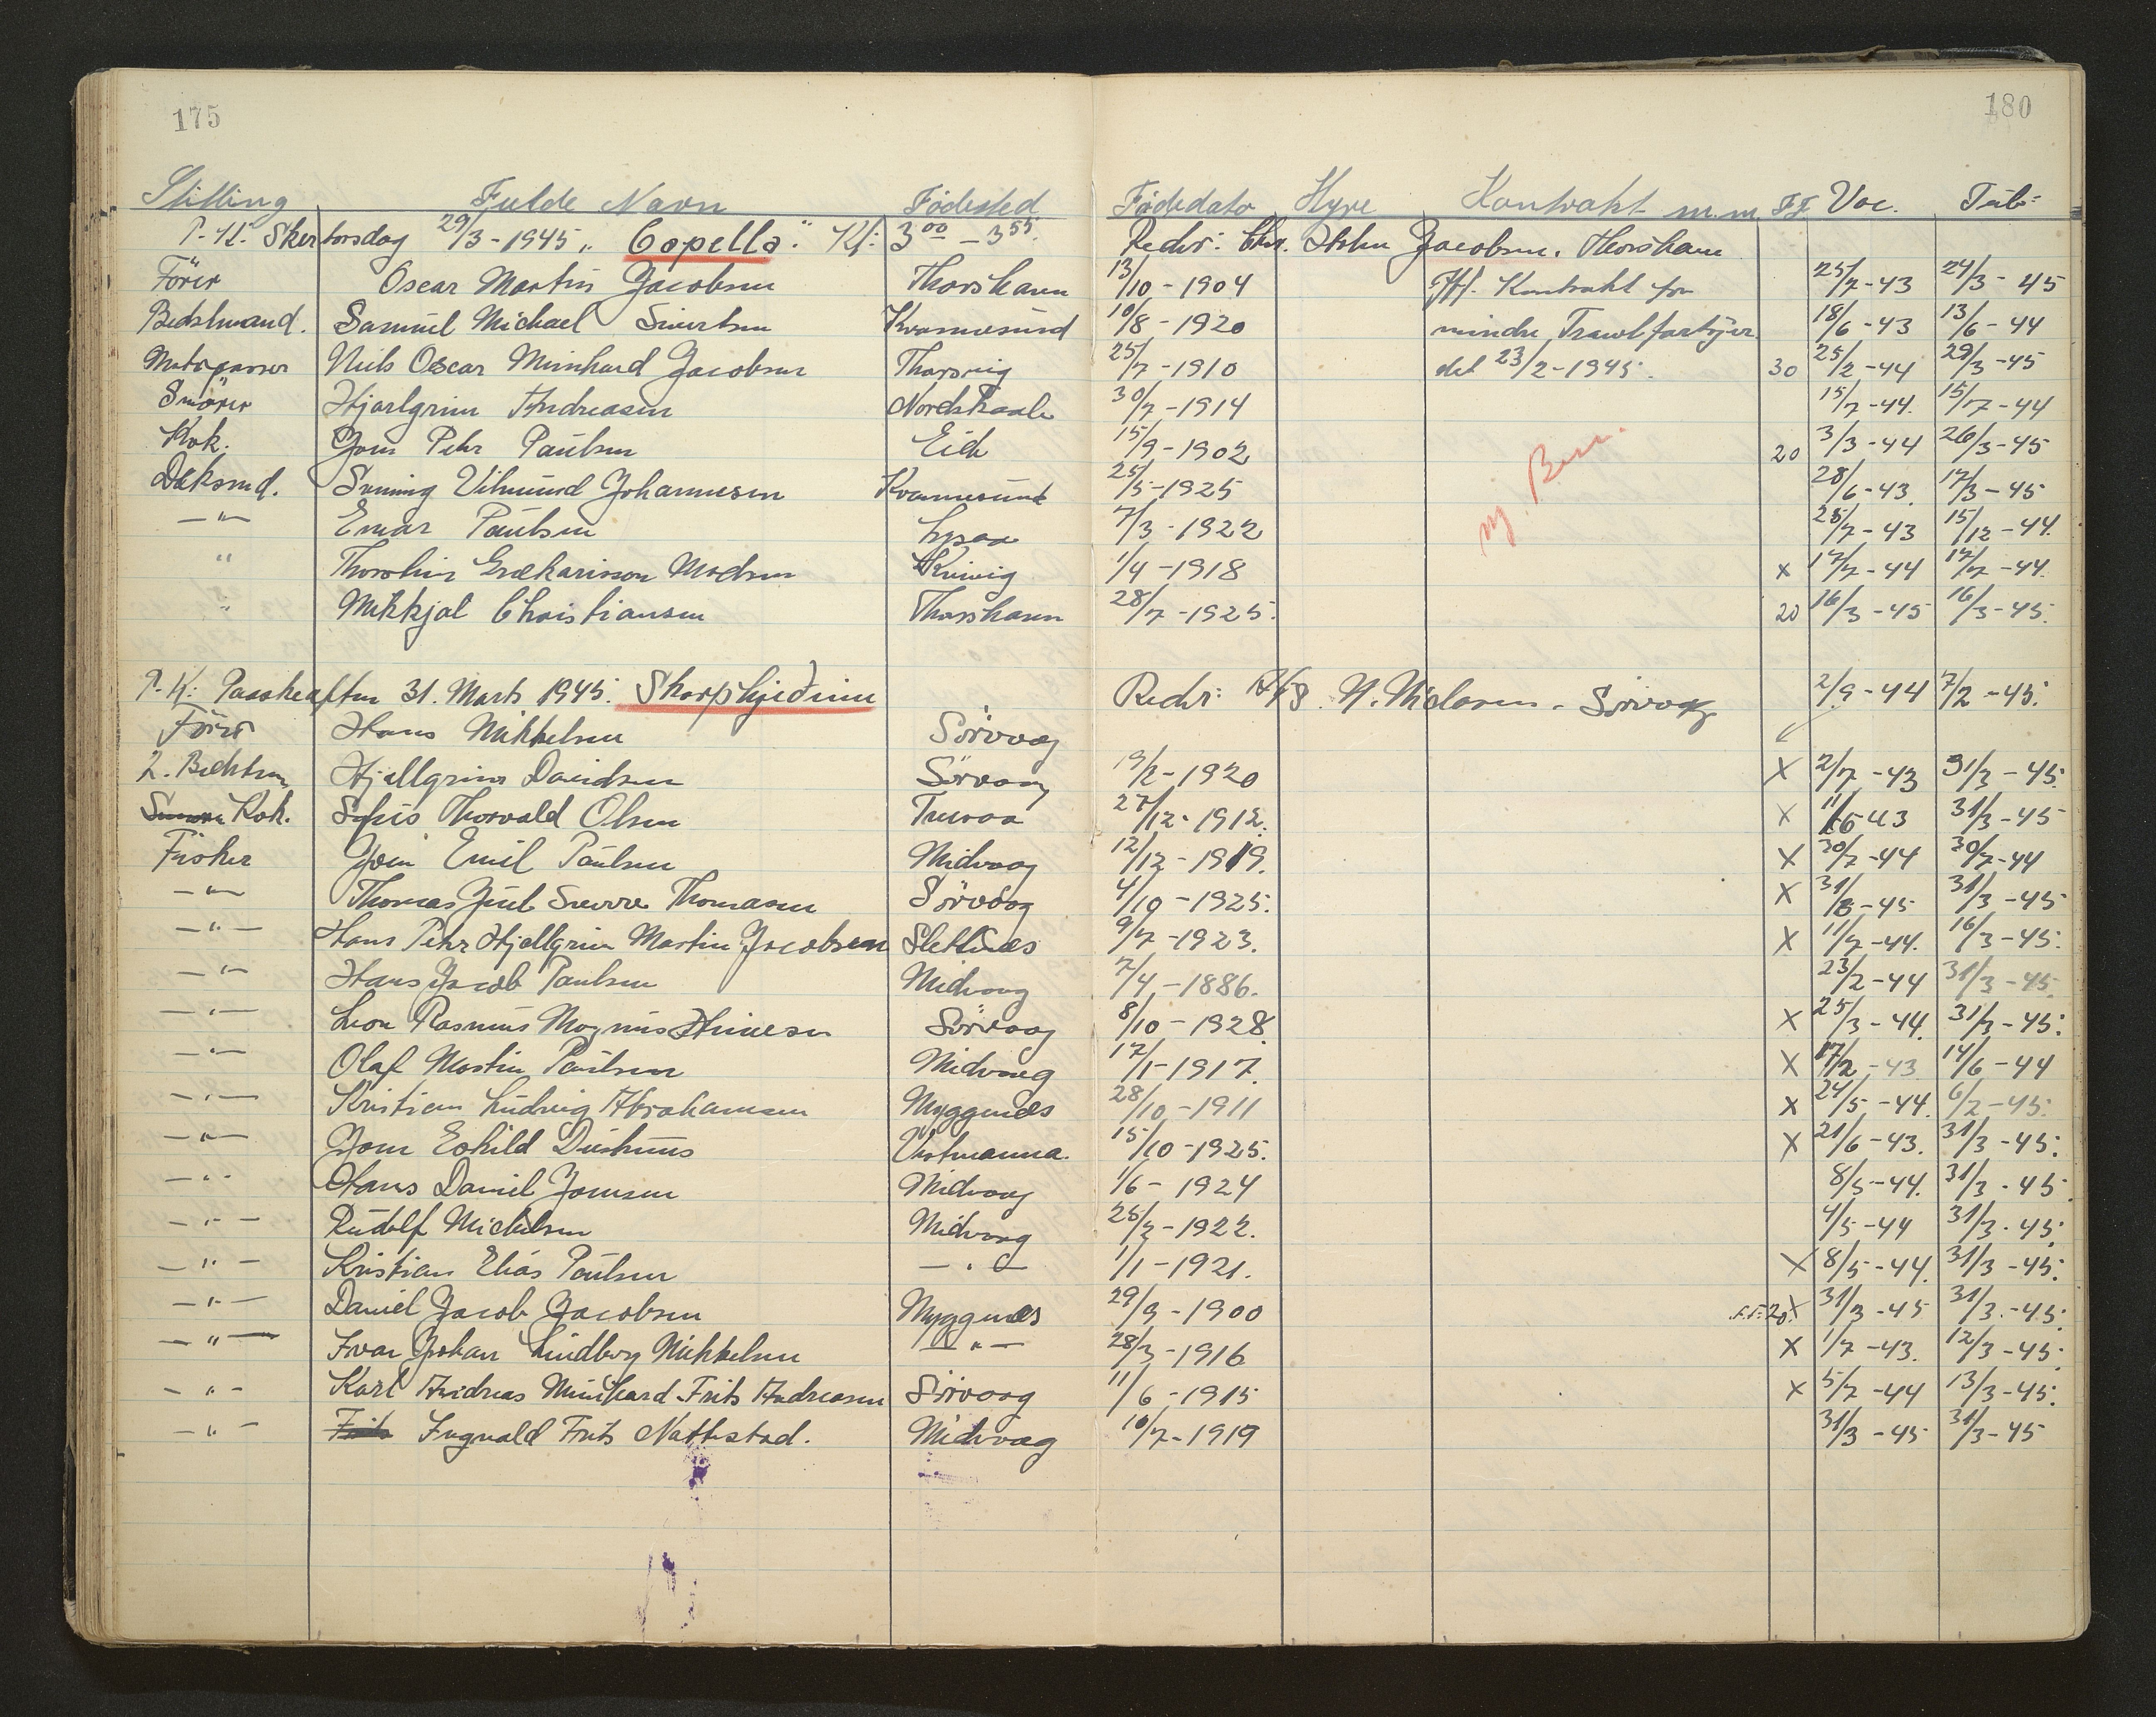 175
180
Stilling Fulde Navn Födested Födedato Hyre Kontrakt m.m. FF Vac. Tub:
P.K. Skertorsdag 29/3-1945 „Capella“ Kl: 3 00 - 3 55. Redr: Chr. Holm Jacobsen. Thorshavn
Förer Oscar Martin Jacobsen Thorshavn 13/10-1904 Iflg. Kontrakt for 25/7-43 24/3-45
Bedstmand. Samuel Michael Sivertsen Kvannesund 10/8-1920 mindre Trawlfartöjer 18/6-43 13/6-44
Motorpasser Niels Oscar Meinhard Jacobsen Thorsvig 25/7-1910 det 23/2-1945. 30 25/2-44 29/3-45
Smörer Hjarlgrim Andreasen Nordskaale 30/7-1914 15/7-44. 15/7-44
Kok. Joen Peter Paulsen Eide 15/9-1902 20 3/3-44 26/3-45
Dæksmd. Svenning Vilmund Johannesen Kvannesund 25/5-1925 28/6-43 17/3-45
—"— Einar Paulsen Lopra 7/3-1922 25/7-43 15/12-44.
" Mohr 1/4-1918 x 17/7-44 17/7-44.
" Mikkjal Christiansen Thorshavn 28/7-1925. 20 16/3-45 16/3-45.
P.K: Paaskeaften 31. Marts 1945. Skarphjedinn Redr: A/S. N. Niclasen. Sørvaag 2/9-44 7/2-45.
Förer Hans Mikkelsen Sörvaag
2. Bedstm Hjallgrim Davidsen Sörvaag 19/2-1920 X 2/7-43 31/3-45.
Kok. Sofus Thorvald Olsen Tveraa 27/12-1912. X 11/6-43 31/3-45
Fisker Joen Emil Paulsen Midvaag 12/12-1919. X 30/7-44 30/7-44
—"— Thomas Juul Sverre Thomasen Sörvaag 4/10-1925. X 31/3-45 31/3-45
—"— Hans Peter Hjallgrim Martin Jacobsen Slettnæs 9/7-1923. X 11/7-44. 16/3-45.
—"— Hans Jacob Paulsen Midvaag 7/4-1886. 23/2-44 31/3-45.
—"— Leon Rasmus Magnus Sörvaag 8/10-1928. X 25/3-44. 31/3-45.
—"— Olaf Martin Paulsen Midvaag 17/1-1917. X 17/2-43 14/6-44
—"— Kristian Ludvig Abrahamsen Myggenæs 28/10-1911 X 24/5-44. 6/2-45.
—"— Joen Eskild Duhuus Vestmanna. 15/10-1925. X 21/6-43. 31/3-45.
—"— Hans Daniel Joensen Midvaag 1/6-1924 8/5-44. 31/3-45.
—"— Rudolf Michelsen Midvaag 25/2-1922. 4/5-44 31/3-45.
—"— Kristian Elias Paulsen —"— 1/1-1921. X 8/5-44. 31/3-45.
—"— Daniel Jacob Jacobsen Myggenæs 29/9-1900 F.F: 20. X 31/3-45 31/3-45.
—"— Ivar Johan Lindberg Mikkelsen —"— 28/3-1916 X 1/7-43. 12/3-45.
—"— Karl Andreas Meinhard Frits Andreasen Sörvaag 11/6-1915 X 5/7-44 13/3-45.
—"— Frits Ingvald Frits Nattestad. Midvaag 10/7-1919 31/3-45 31/3-45